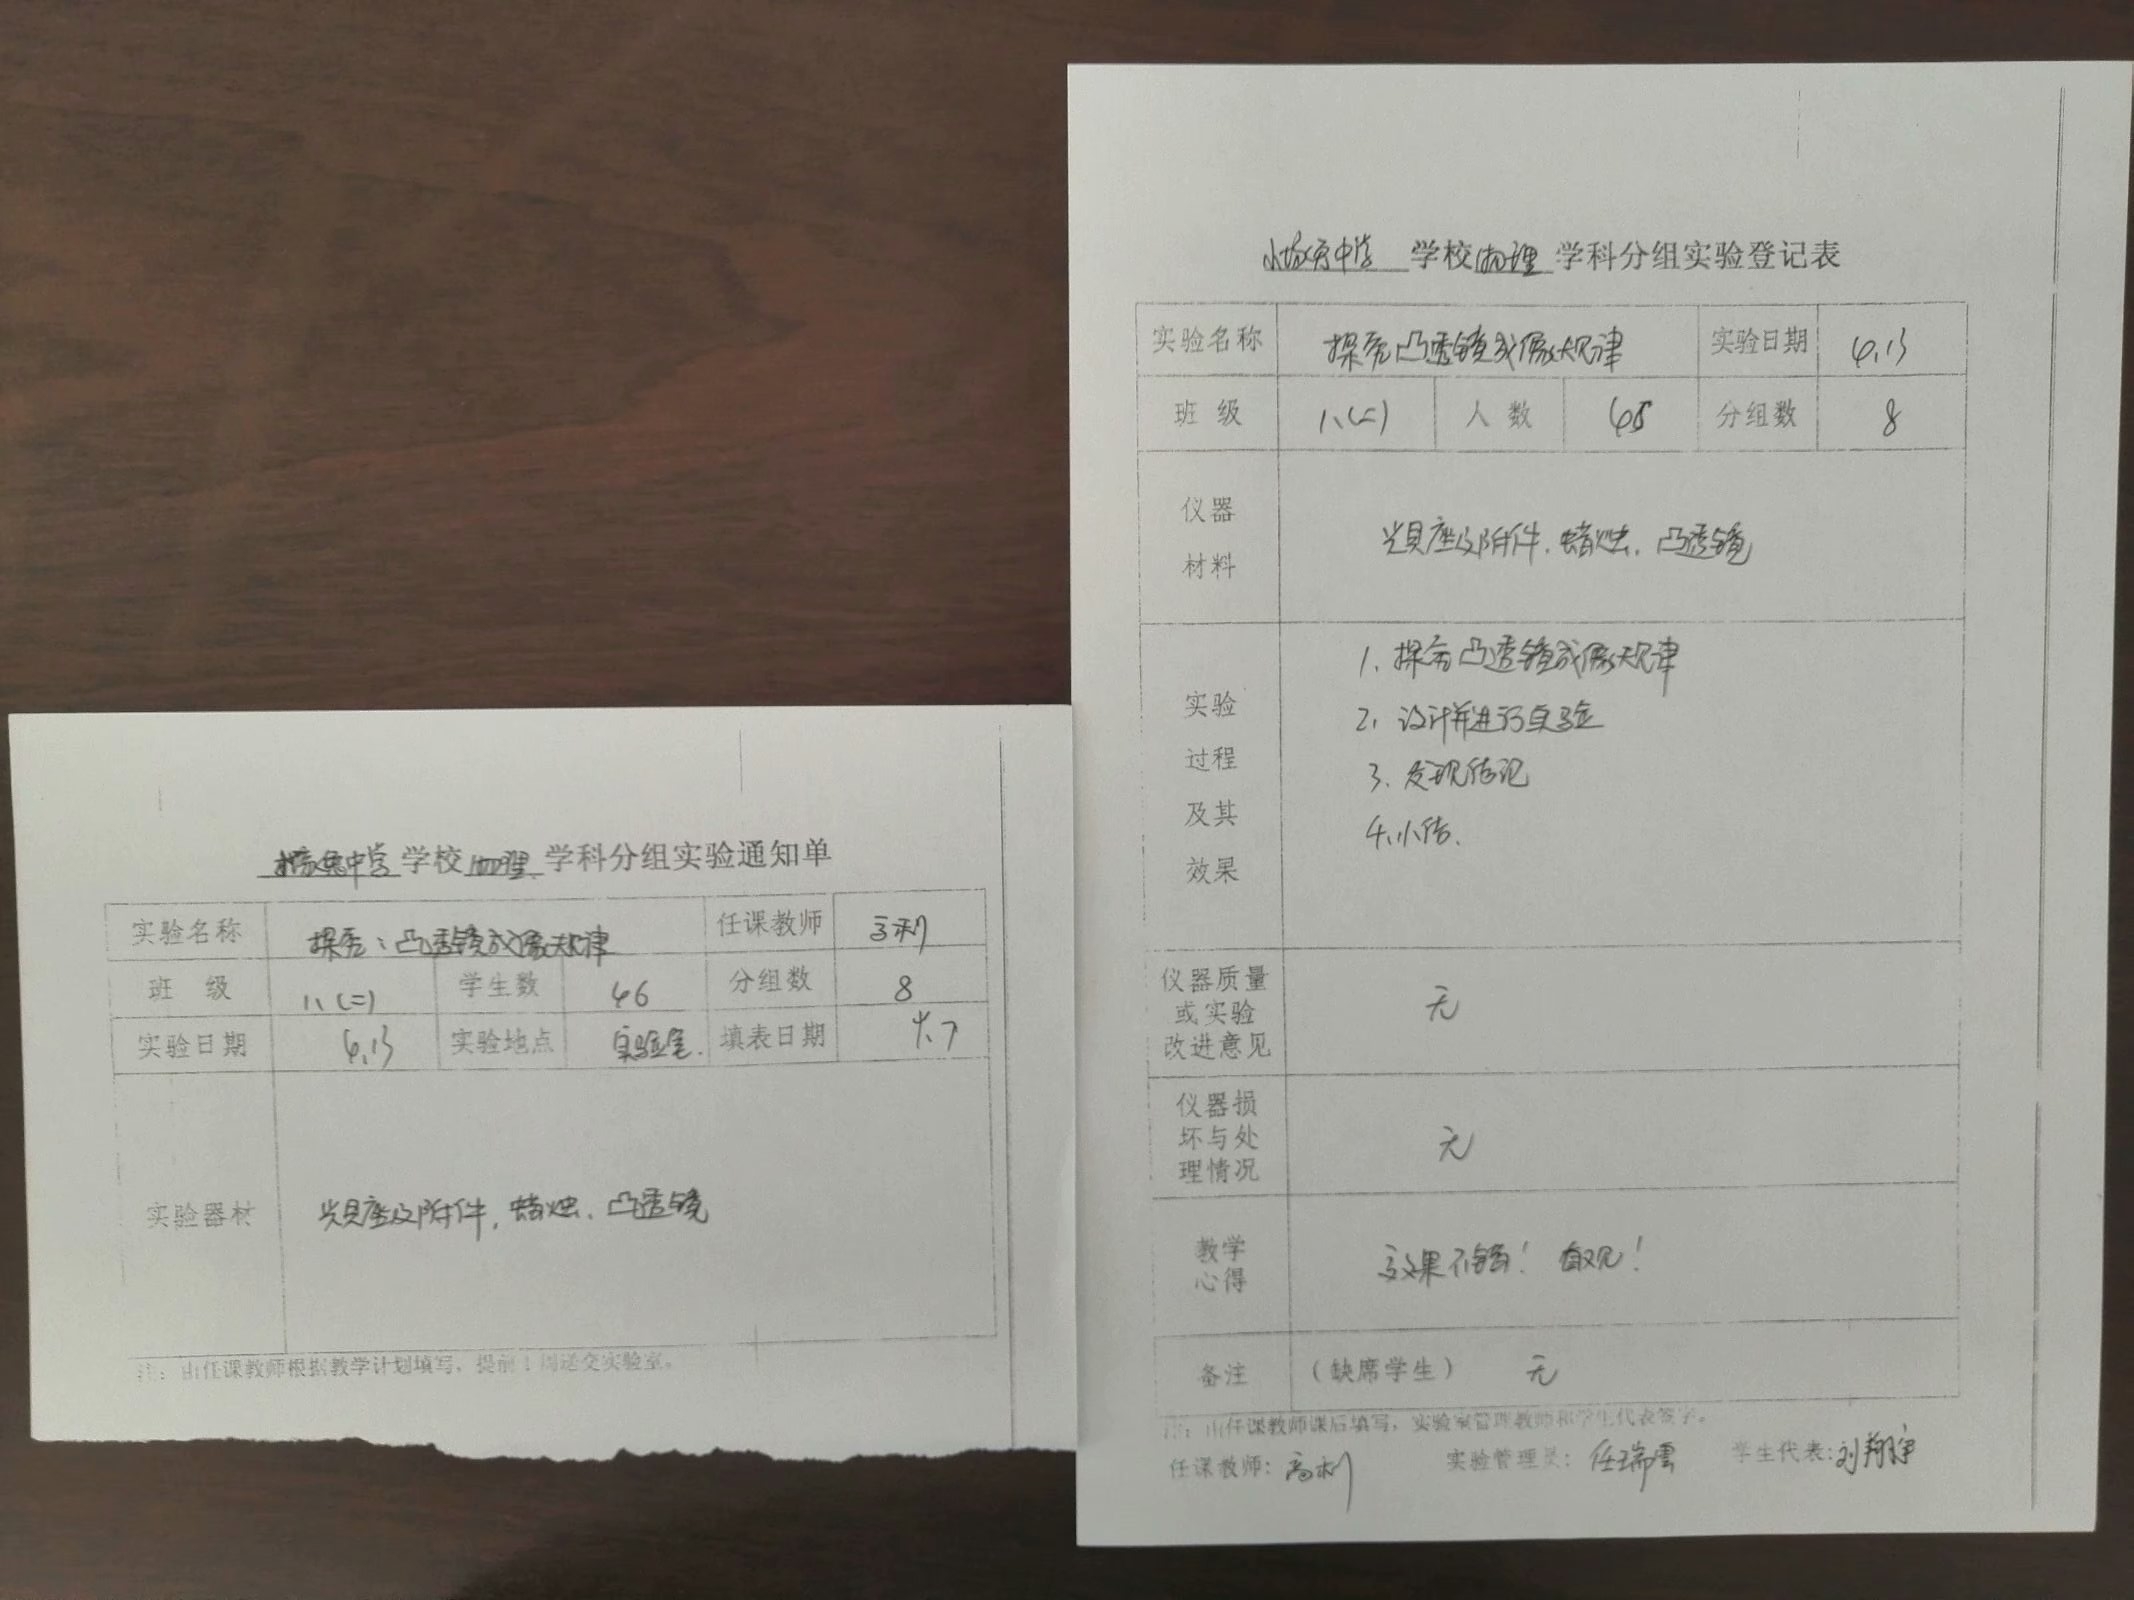 中学 学校 物理 学科分组实验通知单
实验名称 探究：凸透镜成像规律 任课教师 高利
班 级 八.(二) 学生数 46 分组数 8
实验日期 4.13 实验地点 实验室. 填表日期 4.7
实验器材 光具座及附件，蜡烛、凸透镜
注：由任课教师根据教学计划填写，提前1周送交实验室。
中学 学校 物理 学科分组实验登记表
实验名称 探究凸透镜成像规律 实验日期 4.13
班 级 八.(二) 人 数 分组数 8
仪器
材料
光具座及附件、蜡烛、凸透镜
实验
过程
及其
效果
1、探究凸透镜成像规律
2、设计并进行实验
3、发现结论
4、小结.
仪器质量
或实验
改进意见
无
仪器损
坏与处
理情况
无
教学
心得
效果不错！直观！
备注 （缺席学生） 无
注：由任课教师课后填写，实验室管理教师和学生代表签字。
任课教师：高利 实验管理员：任瑞雲 学生代表：刘翔宇